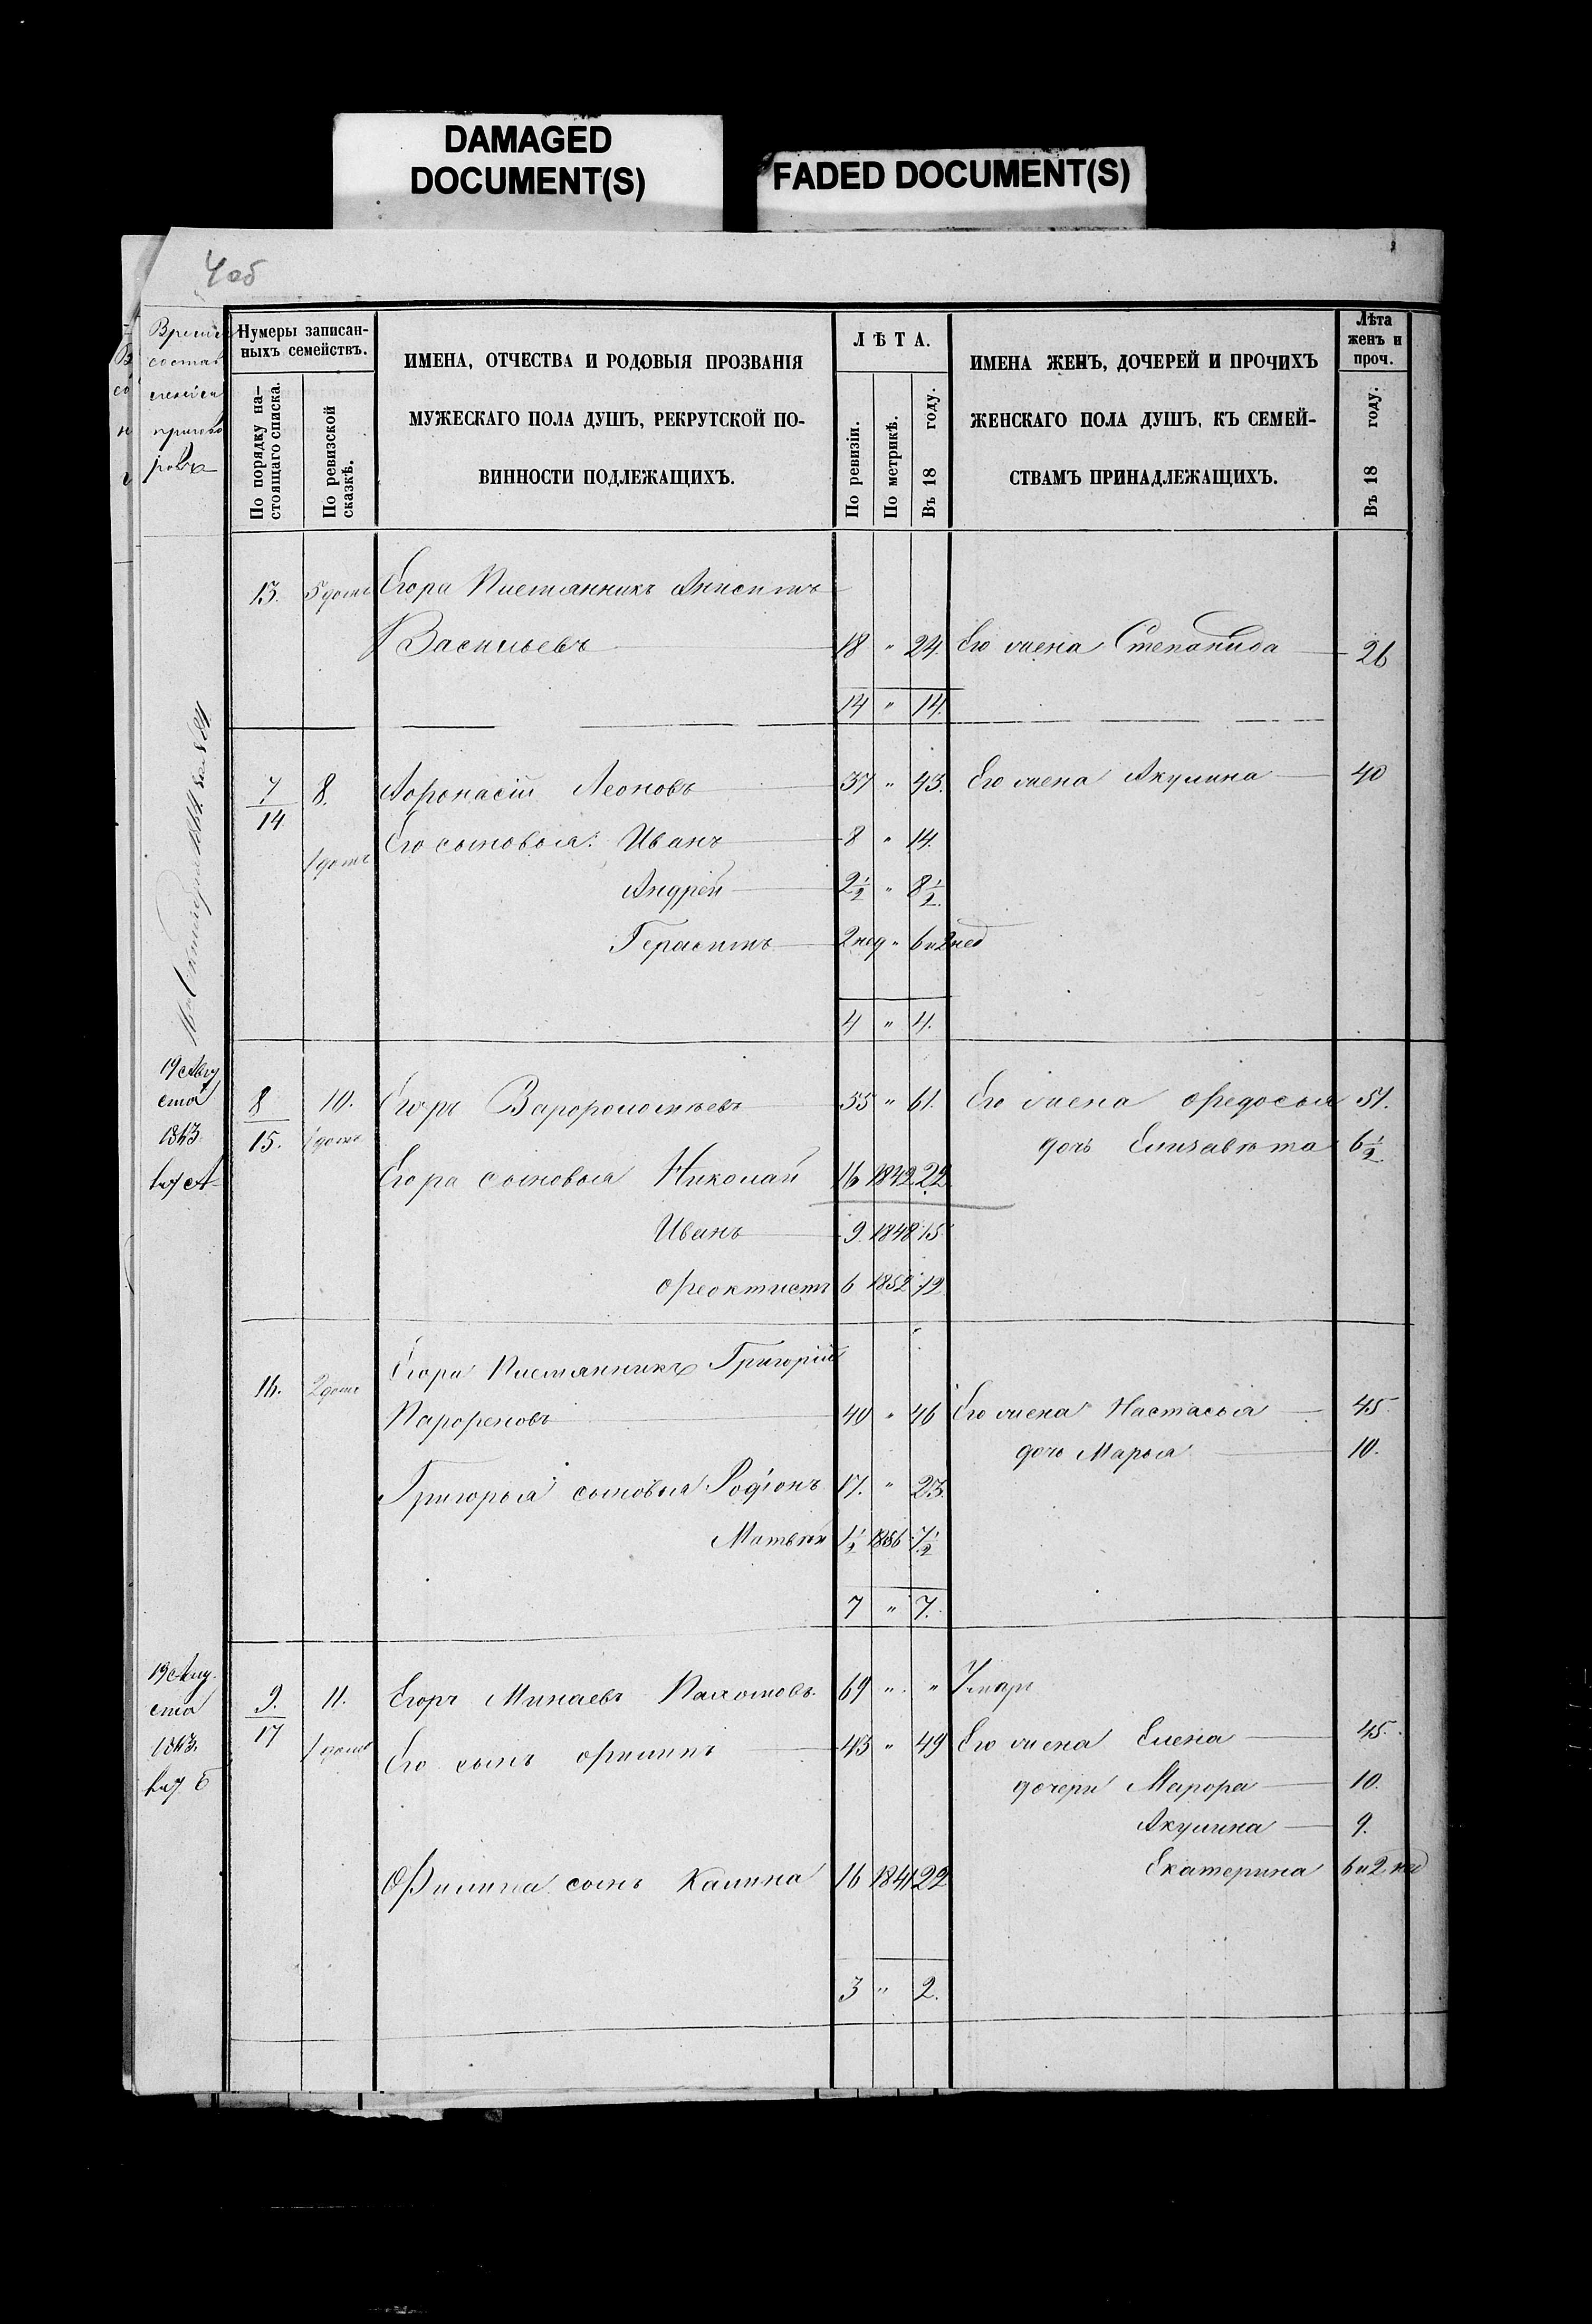 DAMAGED
DOCUMENT(S)
FADED DOCUMENT(S)
4 об
Нумеры записан-
ныхъ семействъ.
По порядку на-
стоящаго списка.
По ревизской
сказкѣ.
ИМЕНА, ОТЧЕСТВА И РОДОВЫЯ ПРОЗВАНІЯ
МУЖЕСКАГО ПОЛА ДУШЪ, РЕКРУТСКОЙ ПО-
ВИННОСТИ ПОДЛЕЖАЩИХЪ.
ЛѢТА.
По ревизіи.
По метрикѣ.
Въ 18 году.
ИМЕНА ЖЕНЪ, ДОЧЕРЕЙ И ПРОЧИХЪ
ЖЕНСКАГО ПОЛА ДУШЪ, КЪ СЕМЕЙ-
СТВАМЪ ПРИНАДЛЕЖАЩИХЪ.
Лѣта
женъ и
проч.
Въ 18 году.
13. Егора Анисимъ
Васильевъ 18 " 24. Его жена Степанида 26
14 " 14.
7/14 8. Афонасій Леоновъ 37 " 43. Его жена Акулина 40
Его сыновья: Иванъ 8 " 14.
Андрей 2½ " 8½
Герасимъ 2 нед " 6 и 2 нед
4 " 4.
19 Авгу
ста
1863
8/15. 10. Егоръ Варфоломѣевъ 55 " 61. Его жена Федосья 51.
дочь Елизавѣта 6½
Егора сыновья Николай 16 1842 22
Иванъ 9 1848 15
Феоктистъ 6 1852 12
16. Егора Григорій
Парфеновъ 40 " 46 Его жена Настасья 45.
дочь Марья 10.
Григорья сыновья Родіонъ 17. " 23.
Матвѣй 1½ 1856 7½
7 " 7.
19 Авгу
ста
1863.
9./17 11. Егоръ Минаевъ Пахомовъ. 69 " " Умаръ
Его сынъ Филипъ 43 " 49 Его жена Елена 45.
дочери Марфа 10.
Акулина 9.
Филипа сынъ Калина 16 1841 22 Екатерина 6 и 2 нед
3 " 2.